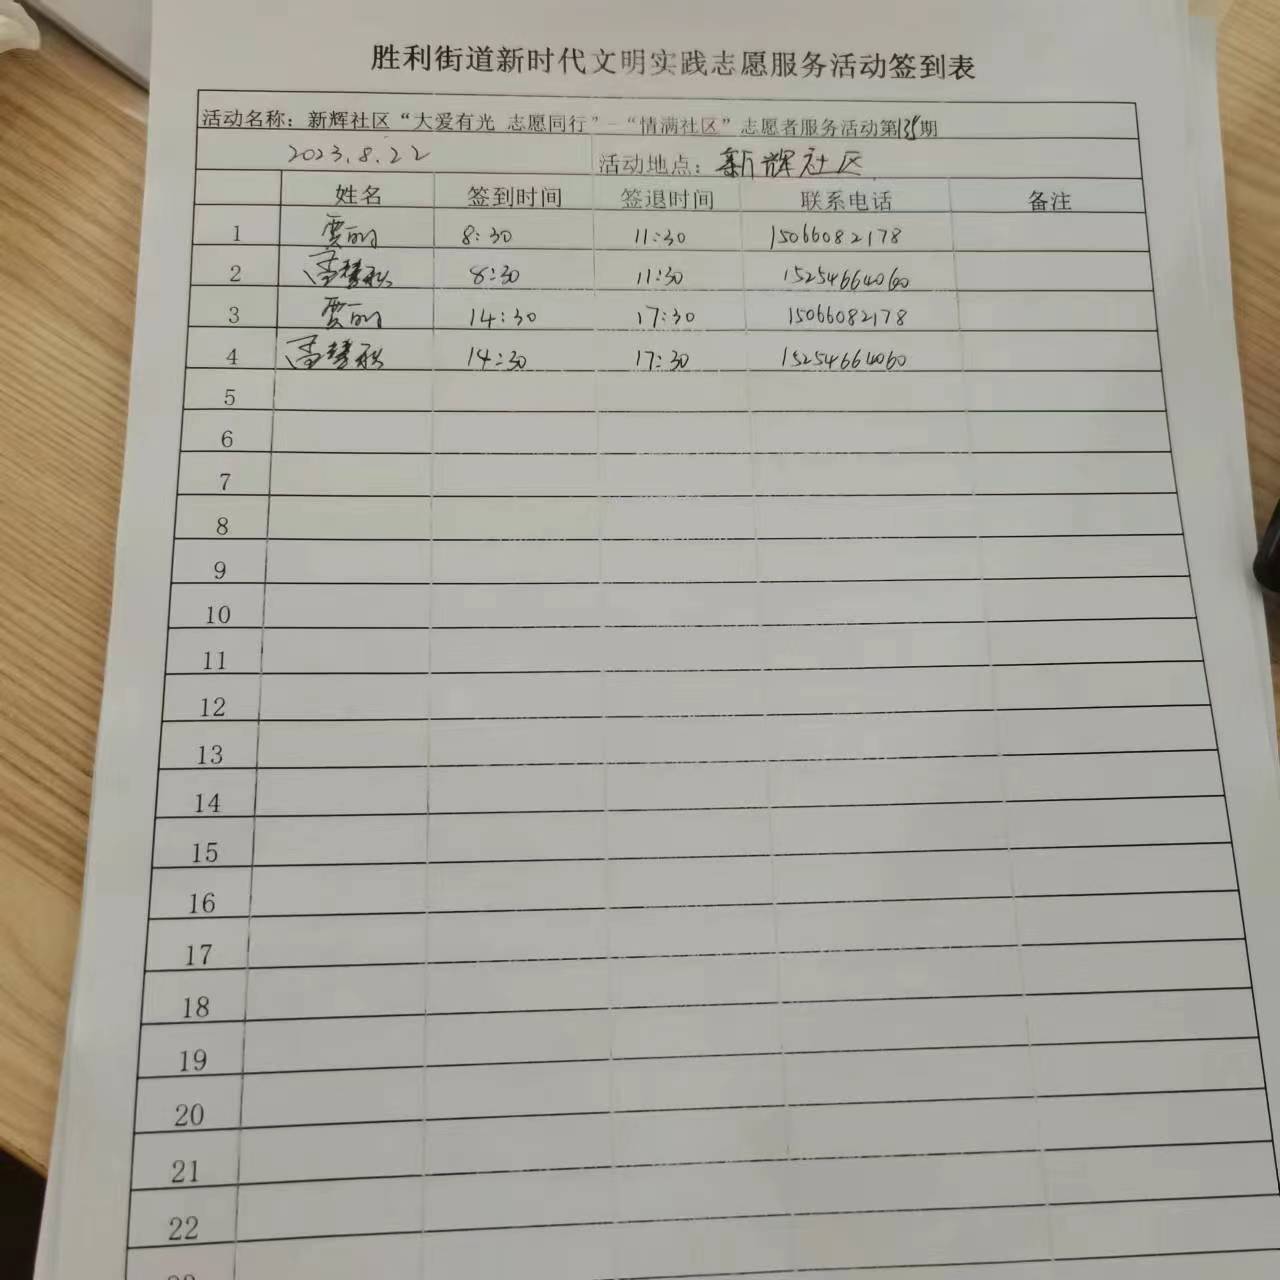 胜利街道新时代文明实践志愿服务活动签到表
活动名称：新辉社区“大爱有光 志愿同行”-“情满社区”志愿者服务活动第135期
2023.8.22 活动地点：新辉社区
姓名 签到时间 签退时间 联系电话 备注
1 贾丽 8:30 11:30 15066082178
2 8:30 11:30 15254664060
3 贾丽 14:30 17:30 15066082178
4 14:30 17:30 15254664060
5
6
7
8
9
10
11
12
13
14
15
16
17
18
19
20
21
22